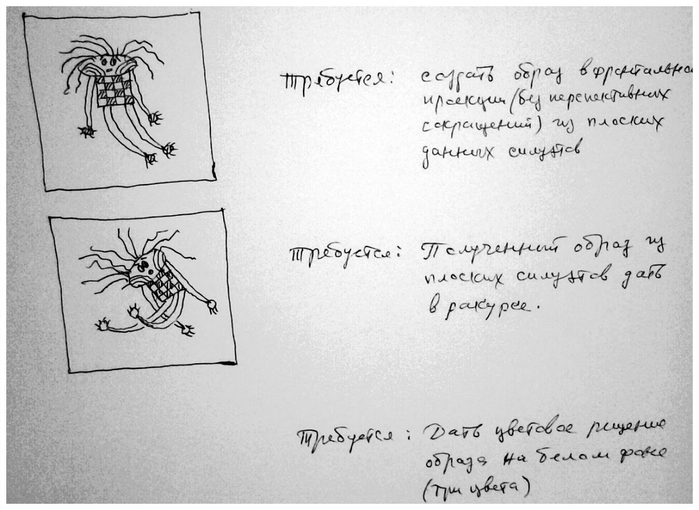 Требуется: создать образ в фронтальной
проекции (без перспективных
сокращений) из плоских
данных силуэтов
Требуется: Полученный образ из
плоских силуэтов дать
в ракурсе.
Требуется: Дать цветовое решение
образа на белом фоне
(три цвета)